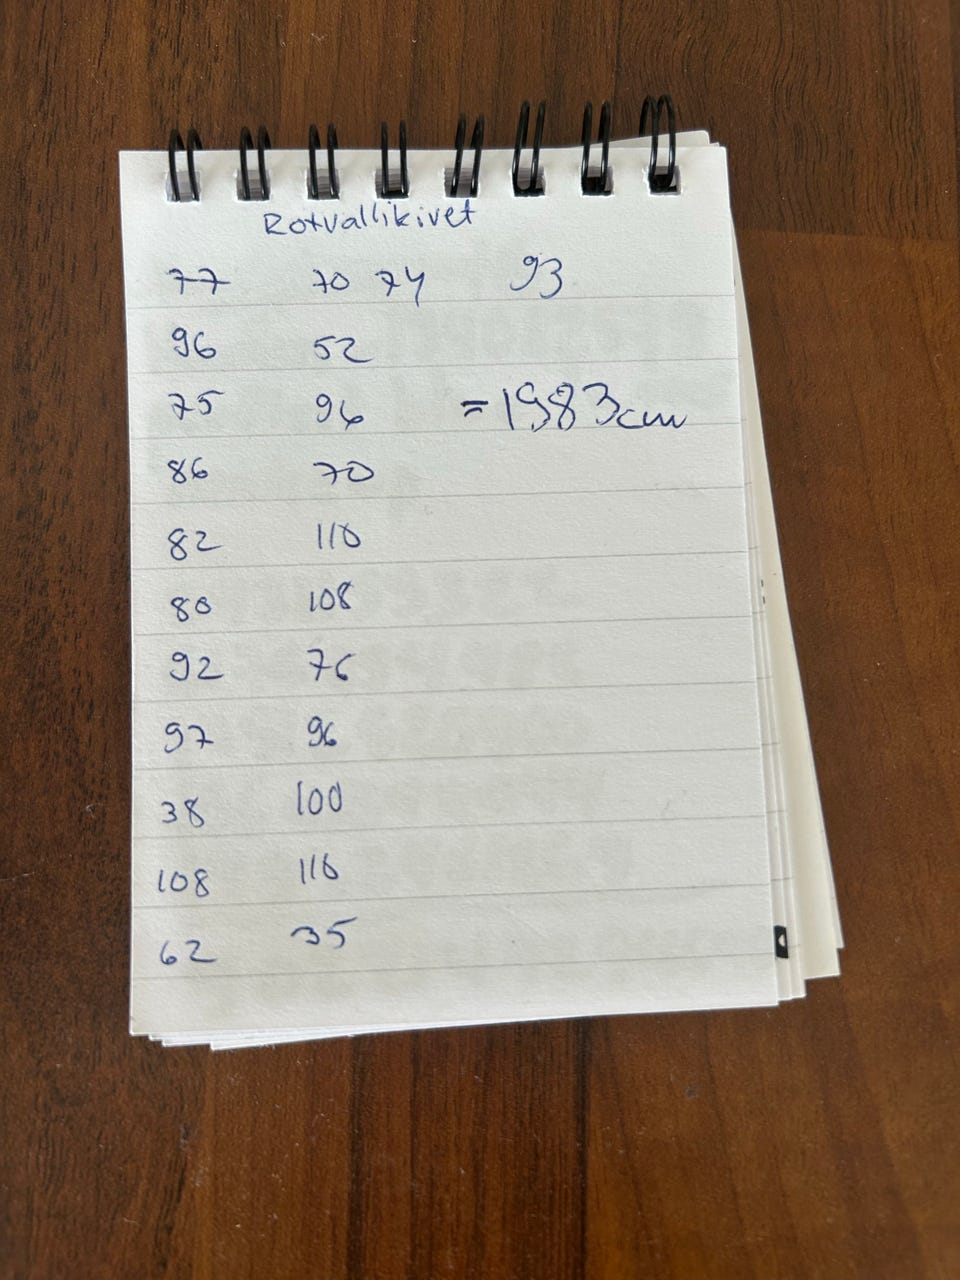 Rotvallikivet
77 70 74 93
96 52
75 96 =1983cm
86 70
82 110
80 108
92 76
97 96
38 100
108 110
62 35